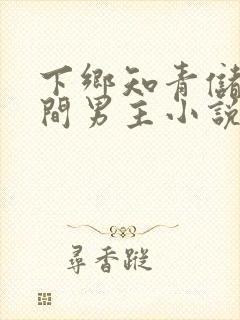 下鄉知青儲
間男主小說
尋香蹤